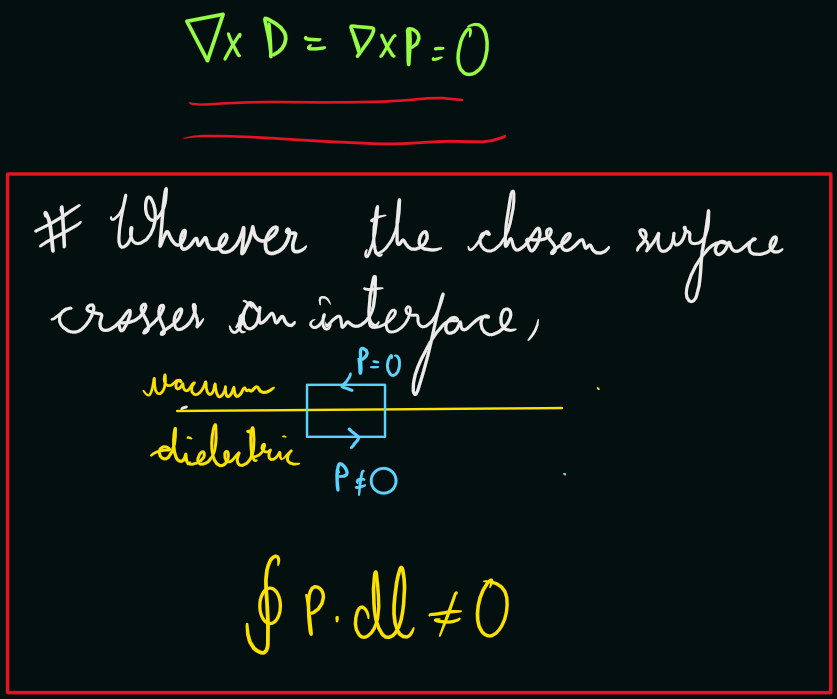 ∇× D = ∇×P = 0
# Whenever the chosen surface
crosses an interface,
P=0
vacuum
dielectric
P≠0
∮ P. dl ≠ 0